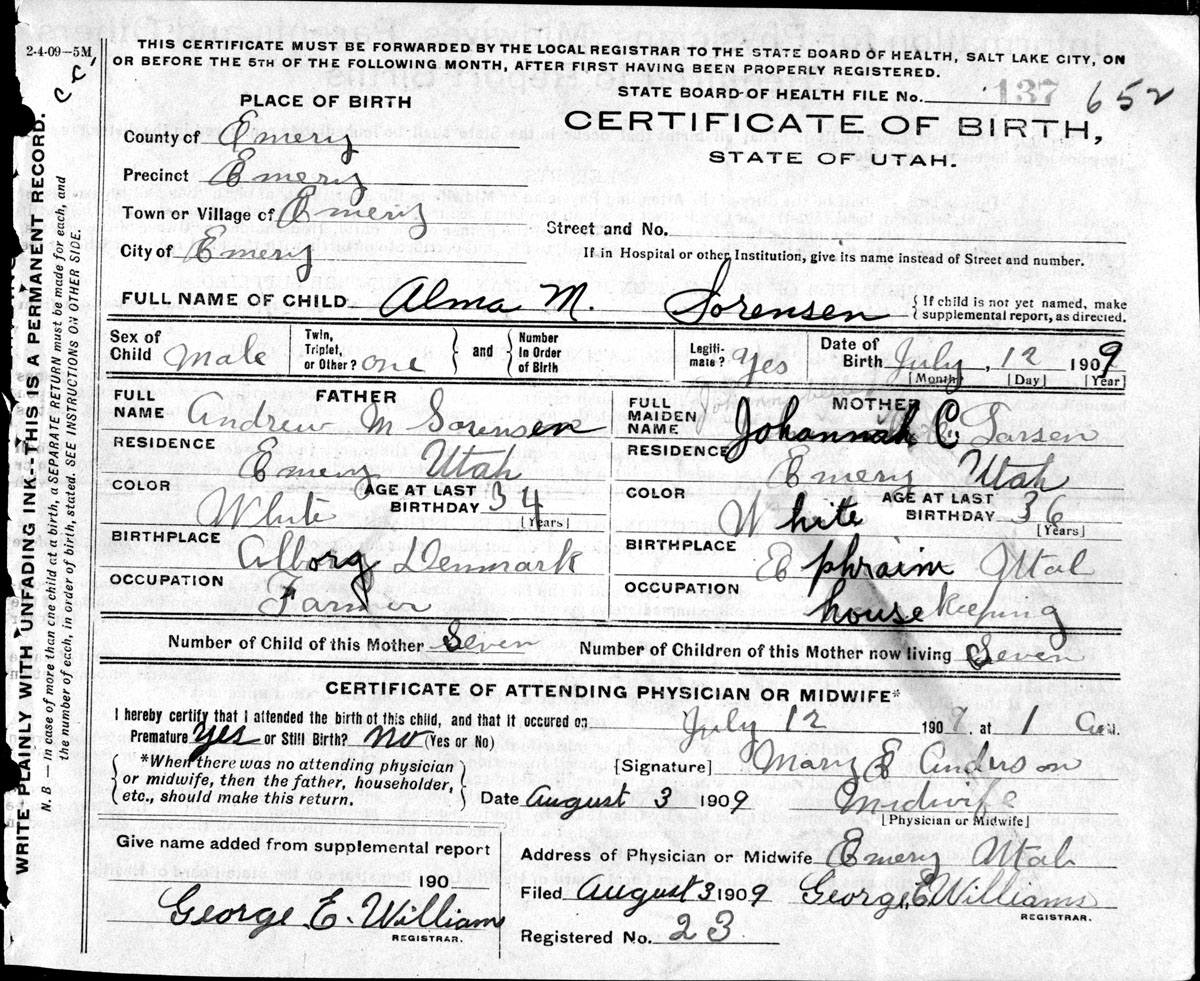 2-4-09—5M
THIS CERTIFICATE MUST BE FORWARDED BY THE LOCAL REGISTRAR TO THE STATE BOARD OF HEALTH, SALT LAKE CITY, ON
OR BEFORE THE 5TH OF THE FOLLOWING MONTH, AFTER FIRST HAVING BEEN PROPERLY REGISTERED.
STATE BOARD OF HEALTH FILE No. 137 652
PLACE OF BIRTH
CERTIFICATE OF BIRTH,
STATE OF UTAH.
County of Emery
Precinct Emery
Town or Village of Emery
Street and No.
City of Emery
If in Hospital or other Institution, give its name instead of Street and number.
FULL NAME OF CHILD Alma M. Sorensen { If child is not yet named, make supplemental report, as directed.
Sex of Child Male Twin, Triplet, or Other? one } and { Number In Order of Birth Legitimate? yes Date of Birth July, 12 1909
[Month] [Day] [Year]
FATHER
FULL NAME Andrew M Sorensen
RESIDENCE Emery Utah
COLOR White AGE AT LAST BIRTHDAY 34 [Years]
BIRTHPLACE Alborg Denmark
OCCUPATION Farmer
MOTHER
FULL MAIDEN NAME Johannah E Larsen
RESIDENCE Emery Utah
COLOR White AGE AT LAST BIRTHDAY 36 [Years]
BIRTHPLACE Ephraim Utah
OCCUPATION house Keeping
Number of Child of this Mother Seven Number of Children of this Mother now living Seven
CERTIFICATE OF ATTENDING PHYSICIAN OR MIDWIFE*
I hereby certify that I attended the birth of this child, and that it occured on July 12 1909. at 1 a M.
Premature yes or Still Birth? no (Yes or No)
{ *When there was no attending physician or midwife, then the father, householder, etc., should make this return. }
[Signature] Mary E Anderson
Date August 3 1909 Midwife
[Physician or Midwife]
Give name added from supplemental report
190
George E. Williams
REGISTRAR.
Address of Physician or Midwife Emery Utah
Filed August 3 1909 George E Williams
REGISTRAR.
Registered No. 23
WRITE PLAINLY WITH UNFADING INK—THIS IS A PERMANENT RECORD.
N. B — In case of more than one child at a birth, a SEPARATE RETURN must be made for each, and
the number of each, in order of birth, stated. SEE INSTRUCTIONS ON OTHER SIDE.